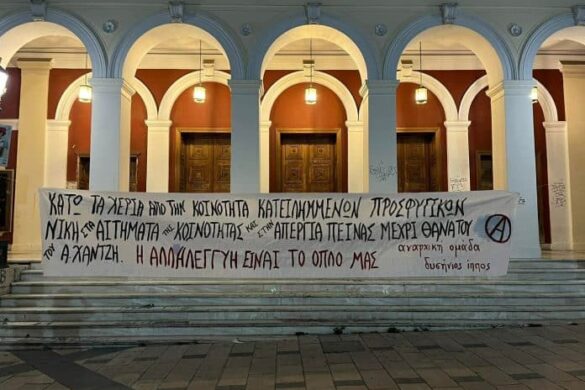 ΚΑΤΩ ΤΑ ΧΕΡΙΑ ΑΠΟ ΤΗΝ ΚΟΙΝΟΤΗΤΑ ΚΑΤΕΙΛΗΜΜΕΝΩΝ ΠΡΟΣΦΥΓΙΚΩΝ
ΝΙΚΗ ΣΤΑ ΑΙΤΗΜΑΤΑ ΤΗΣ ΚΟΙΝΟΤΗΤΑΣ ΚΑΙ ΣΤΗΝ ΑΠΕΡΓΙΑ ΠΕΙΝΑΣ ΜΕΧΡΙ ΘΑΝΑΤΟΥ
ΤΟΥ Α.ΧΑΝΤΖΗ. Η ΑΛΛΗΛΕΓΓΥΗ ΕΙΝΑΙ ΤΟ ΟΠΛΟ ΜΑΣ
αναρχική ομάδα
δυσήνιος ίππος